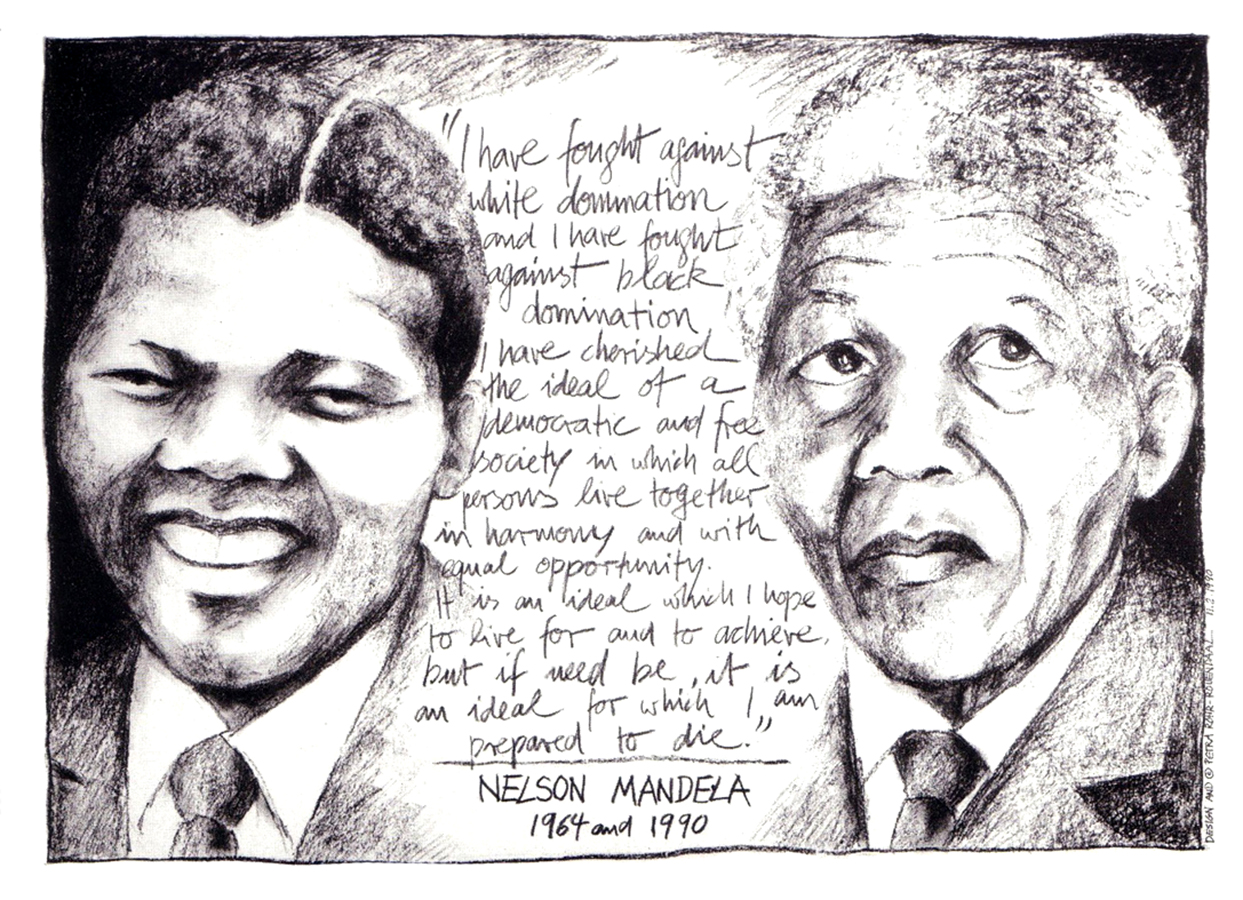 "I have fought against
white domination
and I have fought
against black
domination
I have cherished
the ideal of a
democratic and free
society in which all
persons live together
in harmony and with
equal opportunity.
It is an ideal which I hope
to live for and to achieve,
but if need be, it is
an ideal for which I am
prepared to die."
NELSON MANDELA
1964 and 1990
DESIGN AND © PETRA 11.2.1990